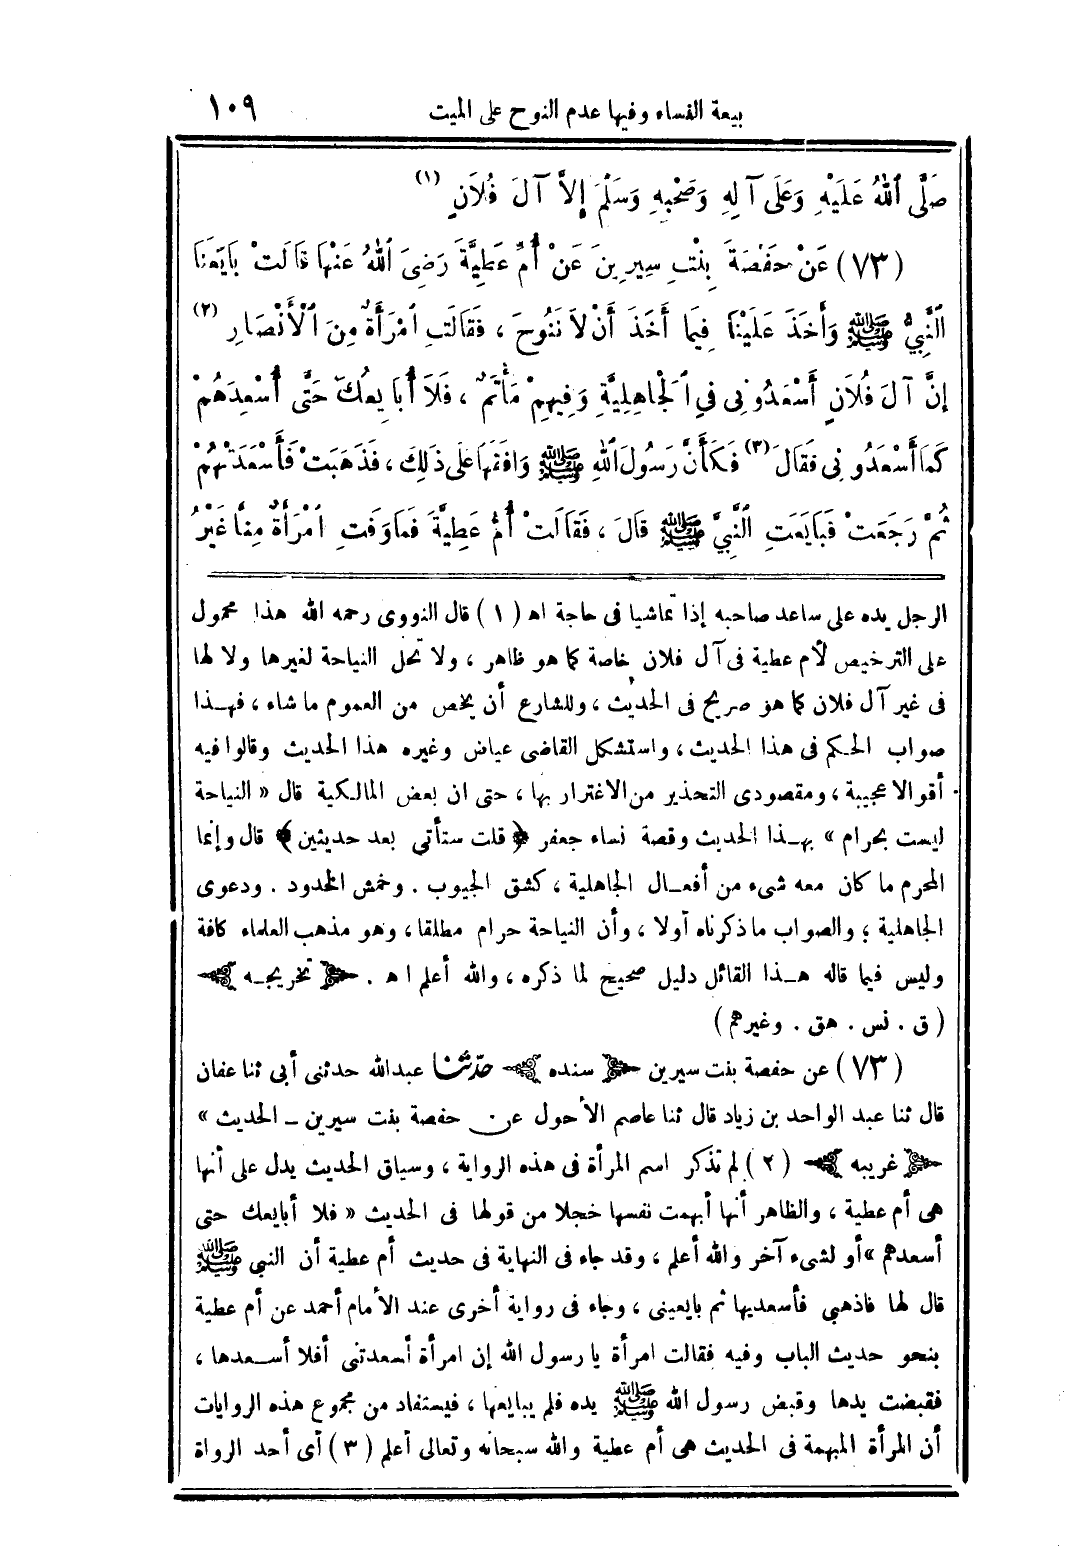 بيعة النساء وفيها عدم النوح على الميت ١٠٩
صَلَّى ٱللهُ عَلَيْهِ وَعَلَى آلِهِ وَصَحْبِهِ وَسَلَّمَ إِلاَّ آلَ فُلَانٍ (١)
(٧٣) عَنْ حَفْصَةَ بِنْتِ سِيرِينَ عَنْ أُمِّ عَطِيَّةَ رَضِيَ ٱللهُ عَنْهَا قَالَتْ بَايَعْنَا
ٱلنَّبِيَّ ﷺ وَأَخَذَ عَلَيْنَا فِيمَا أَخَذَ أَنْ لاَ نَنُوحَ ، فَقَالَتِ ٱمْرَأَةٌ مِنَ ٱلْأَنْصَارِ (٢)
إِنَّ آلَ فُلَانٍ أَسْعَدُونِي فِي ٱلْجَاهِلِيَّةِ وَفِيهِمْ مَأْتَمٌ ، فَلَا أُبَايِعُكَ حَتَّى أُسْعِدَهُمْ
كَمَا أَسْعَدُونِي فَقَالَ (٣) فَكَأَنَّ رَسُولَ ٱللهِ ﷺ وَافَقَهَا عَلَى ذَلِكَ ، فَذَهَبَتْ فَأَسْعَدَتْهُمْ
ثُمَّ رَجَعَتْ فَبَايَعَتِ ٱلنَّبِيَّ ﷺ قَالَ ، فَقَالَتْ أُمُّ عَطِيَّةَ فَمَا وَفَتِ ٱمْرَأَةٌ مِنَّا غَيْرُ
الرجل يده على ساعد صاحبه إذا تماشيا فى حاجة اه (١) قال النووى رحمه الله هذا محمول
على الترخيص لأم عطية فى آل فلان خاصة كما هو ظاهر ، ولا تحل النياحة لغيرها ولا لها
فى غير آل فلان كما هو صريح فى الحديث ، وللشارع أن يخص من العموم ما شاء ، فهـذا
صواب الحكم فى هذا الحديث ، واستشكل القاضى عياض وغيره هذا الحديث وقالوا فيه
أقوالا عجيبة ، ومقصودى التحذير من الاغترار بها ، حتى ان بعض المالكية قال « النياحة
ليست بحرام » بهـذا الحديث وقصة نساء جعفر ﴿ قلت ستأتي بعد حديثين ﴾ قال وإنما
المحرم ما كان معه شىء من أفعـال الجاهلية ، كشق الجيوب . وخمش الخدود . ودعوى
الجاهلية ؛ والصواب ما ذكرناه أولا ، وأن النياحة حرام مطلقا ، وهو مذهب العلماء كافة
وليس فيما قاله هـذا القائل دليل صحيح لما ذكره ، والله أعلم اه . ﴿ تخريجـه ﴾
(ق . نس . هق . وغيرهم)
(٧٣) عن حفصة بنت سيرين ﴿ سنده ﴾ حدّثنا عبدالله حدثنى أبى ثنا عفان
قال ثنا عبد الواحد بن زياد قال ثنا عاصم الأحول عن حفصة بنت سيرين ـ الحديث »
﴿ غريبه ﴾ (٢) لم تذكر اسم المرأة فى هذه الرواية ، وسياق الحديث يدل على أنها
هى أم عطية ، والظاهر أنها أبهمت نفسها خجلا من قولها فى الحديث « فلا أبايعك حتى
أسعدهم » أو لشىء آخر والله أعلم ، وقد جاء فى النهاية فى حديث أم عطية أن النبي ﷺ
قال لها فاذهبي فأسعديها ثم بايعينى ، وجاء فى رواية أخرى عند الأمام أحمد عن أم عطية
بنحو حديث الباب وفيه فقالت امرأة يا رسول الله إن امرأة أسعدتنى أفلا أسـعدها ،
فقبضت يدها وقبض رسول الله ﷺ يده فلم يبايعها ، فيستفاد من مجموع هذه الروايات
أن المرأة المبهمة فى الحديث هى أم عطية والله سبحانه وتعالى أعلم (٣) أى أحد الرواة